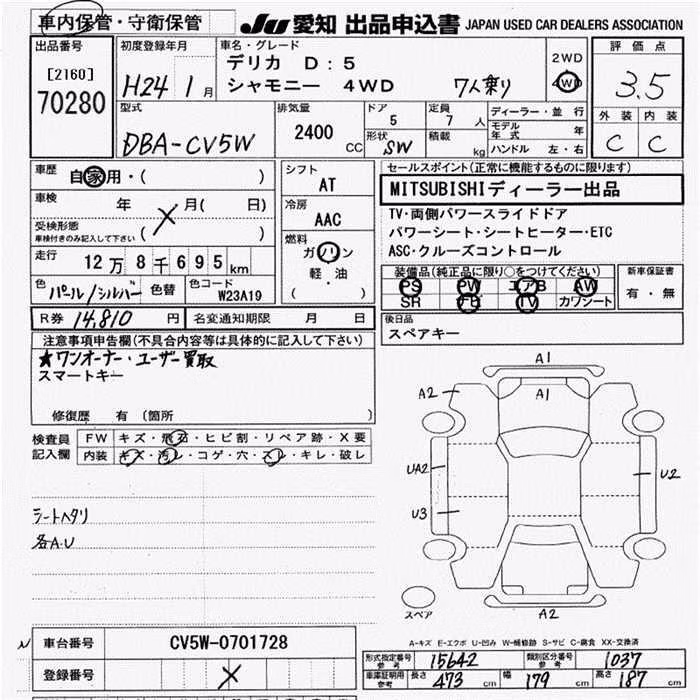 車内保管・守衛保管
JU 愛知 出品申込書 JAPAN USED CAR DEALERS ASSOCIATION
出品番号
[2160]
70280
初度登録年月
H24 1月
車名・グレード
デリカ D:5
シャモニー 4WD 7人乗り
2WD
4WD
評価点
3.5
外装 内装
C C
型式
DBA-CV5W
排気量
2400 CC
ドア
5
形状 SW
定員
7 人
積載 kg
ディーラー・並行
モデル年式 年
ハンドル 左・右
車歴
自家用・( )
車検
年 月( 日)
受検形態
車検付きのみ記入して下さい ( )
走行 12万8千695km
色 パール/シルバー 色替
色コード
W23A19
シフト
AT
冷房
AAC
燃料
ガソリン
軽・油
( )
セールスポイント(正常に機能するものに限ります)
MITSUBISHIディーラー出品
TV・両側パワースライドドア
パワーシート・シートヒーター・ETC
ASC・クルーズコントロール
装備品(純正品に限り○をつけてください)
PS PW エアB AW
SR FB TV カワシート
新車保証書
有・無
後日品
スペアキー
R券 14,810 円 名変通知期限 月 日
注意事項申告欄(不具合内容等は具体的に記入して下さい)
★ワンオーナー・ユーザー買取
スマートキー
修復歴 有(箇所 )
検査員記入欄
FW キズ・飛石・ヒビ割・リペア跡・X要
内装 キズ・汚レ・コゲ・穴・スレ・キレ・破レ
シートヘタリ
各A.U
A1
A2 A1
UA2 U2
U3
スペア
A2
A-キズ E-エクボ U-凹み W-補修跡 S-サビ C-腐食 XX-交換済
車台番号 CV5W-0701728
登録番号
形式指定番号 参考 15642 類別区分番号 参考 1037
車庫証明用 参考 長さ 473 cm 幅 179 cm 高さ 187 cm